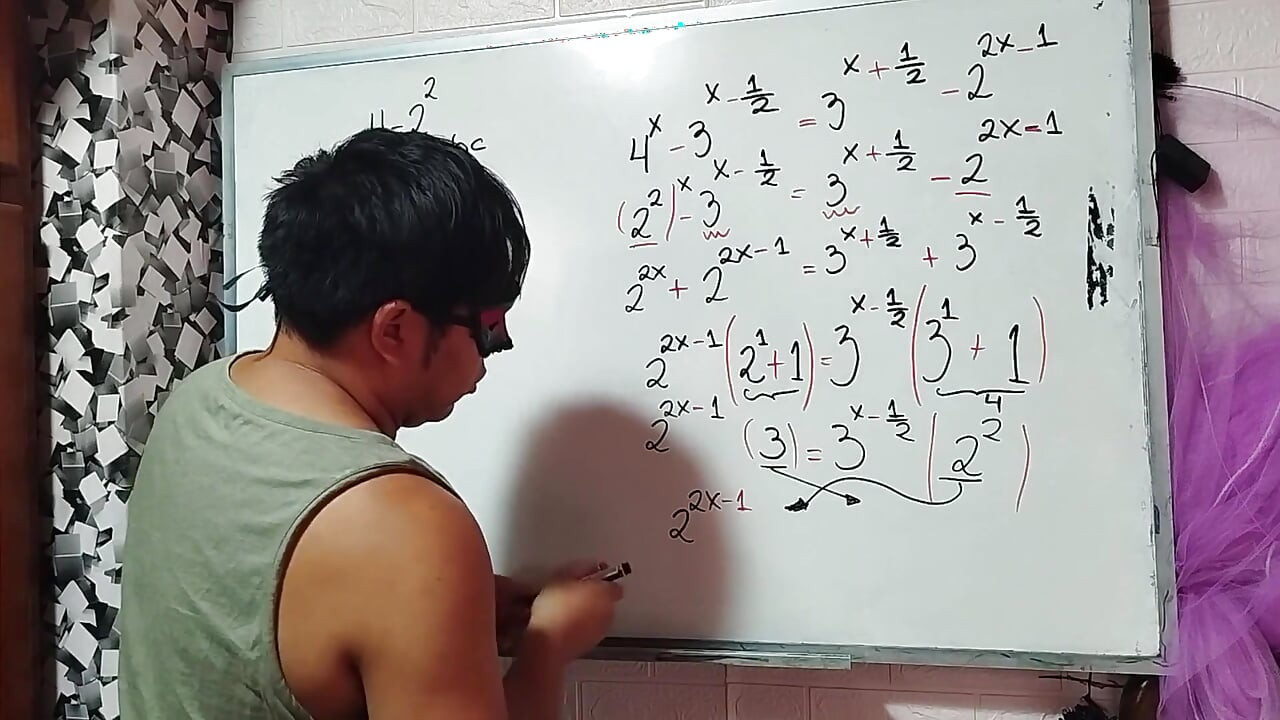 4=2²
bc
4^x - 3^(x - 1/2) = 3^(x + 1/2) - 2^(2x - 1)
(2²)^x - 3^(x - 1/2) = 3^(x + 1/2) - 2^(2x - 1)
2^(2x) + 2^(2x - 1) = 3^(x + 1/2) + 3^(x - 1/2)
2^(2x - 1) (2¹ + 1) = 3^(x - 1/2) (3¹ + 1)
4
2^(2x - 1) (3) = 3^(x - 1/2) (2²)
2^(2x - 1)